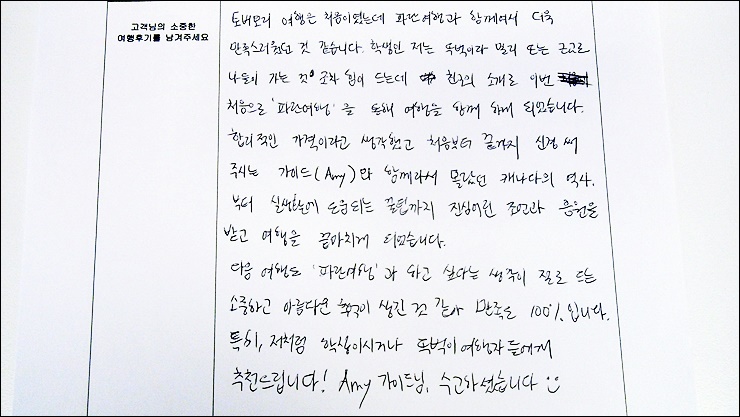 고객님의 소중한
여행후기를 남겨주세요
토버모리 여행은 처음이었는데 파란여행과 함께여서 더욱
만족스러웠던 것 같습니다. 학생인 저는 뚜벅이라 멀리 또는 근교로
나들이 가는 것 조차 힘이 드는데 친구의 소개로 이번
처음으로 '파란여행'을 통해 여행을 함께 하게 되었습니다.
합리적인 가격이라고 생각했고 처음부터 끝까지 신경 써
주시는 가이드(Amy)와 함께라서 몰랐던 캐나다의 역사
부터 실생활에 도움되는 꿀팁까지 진심어린 조언과 응원을
받고 여행을 끝마치게 되었습니다.
다음 여행도 '파란여행'과 하고 싶다는 생각이 절로 드는
소중하고 아름다운 추억이 생긴 것 같아 만족도 100%입니다.
특히, 저처럼 학생이시거나 뚜벅이 여행자들에게
추천드립니다! Amy 가이드님, 수고하셨습니다